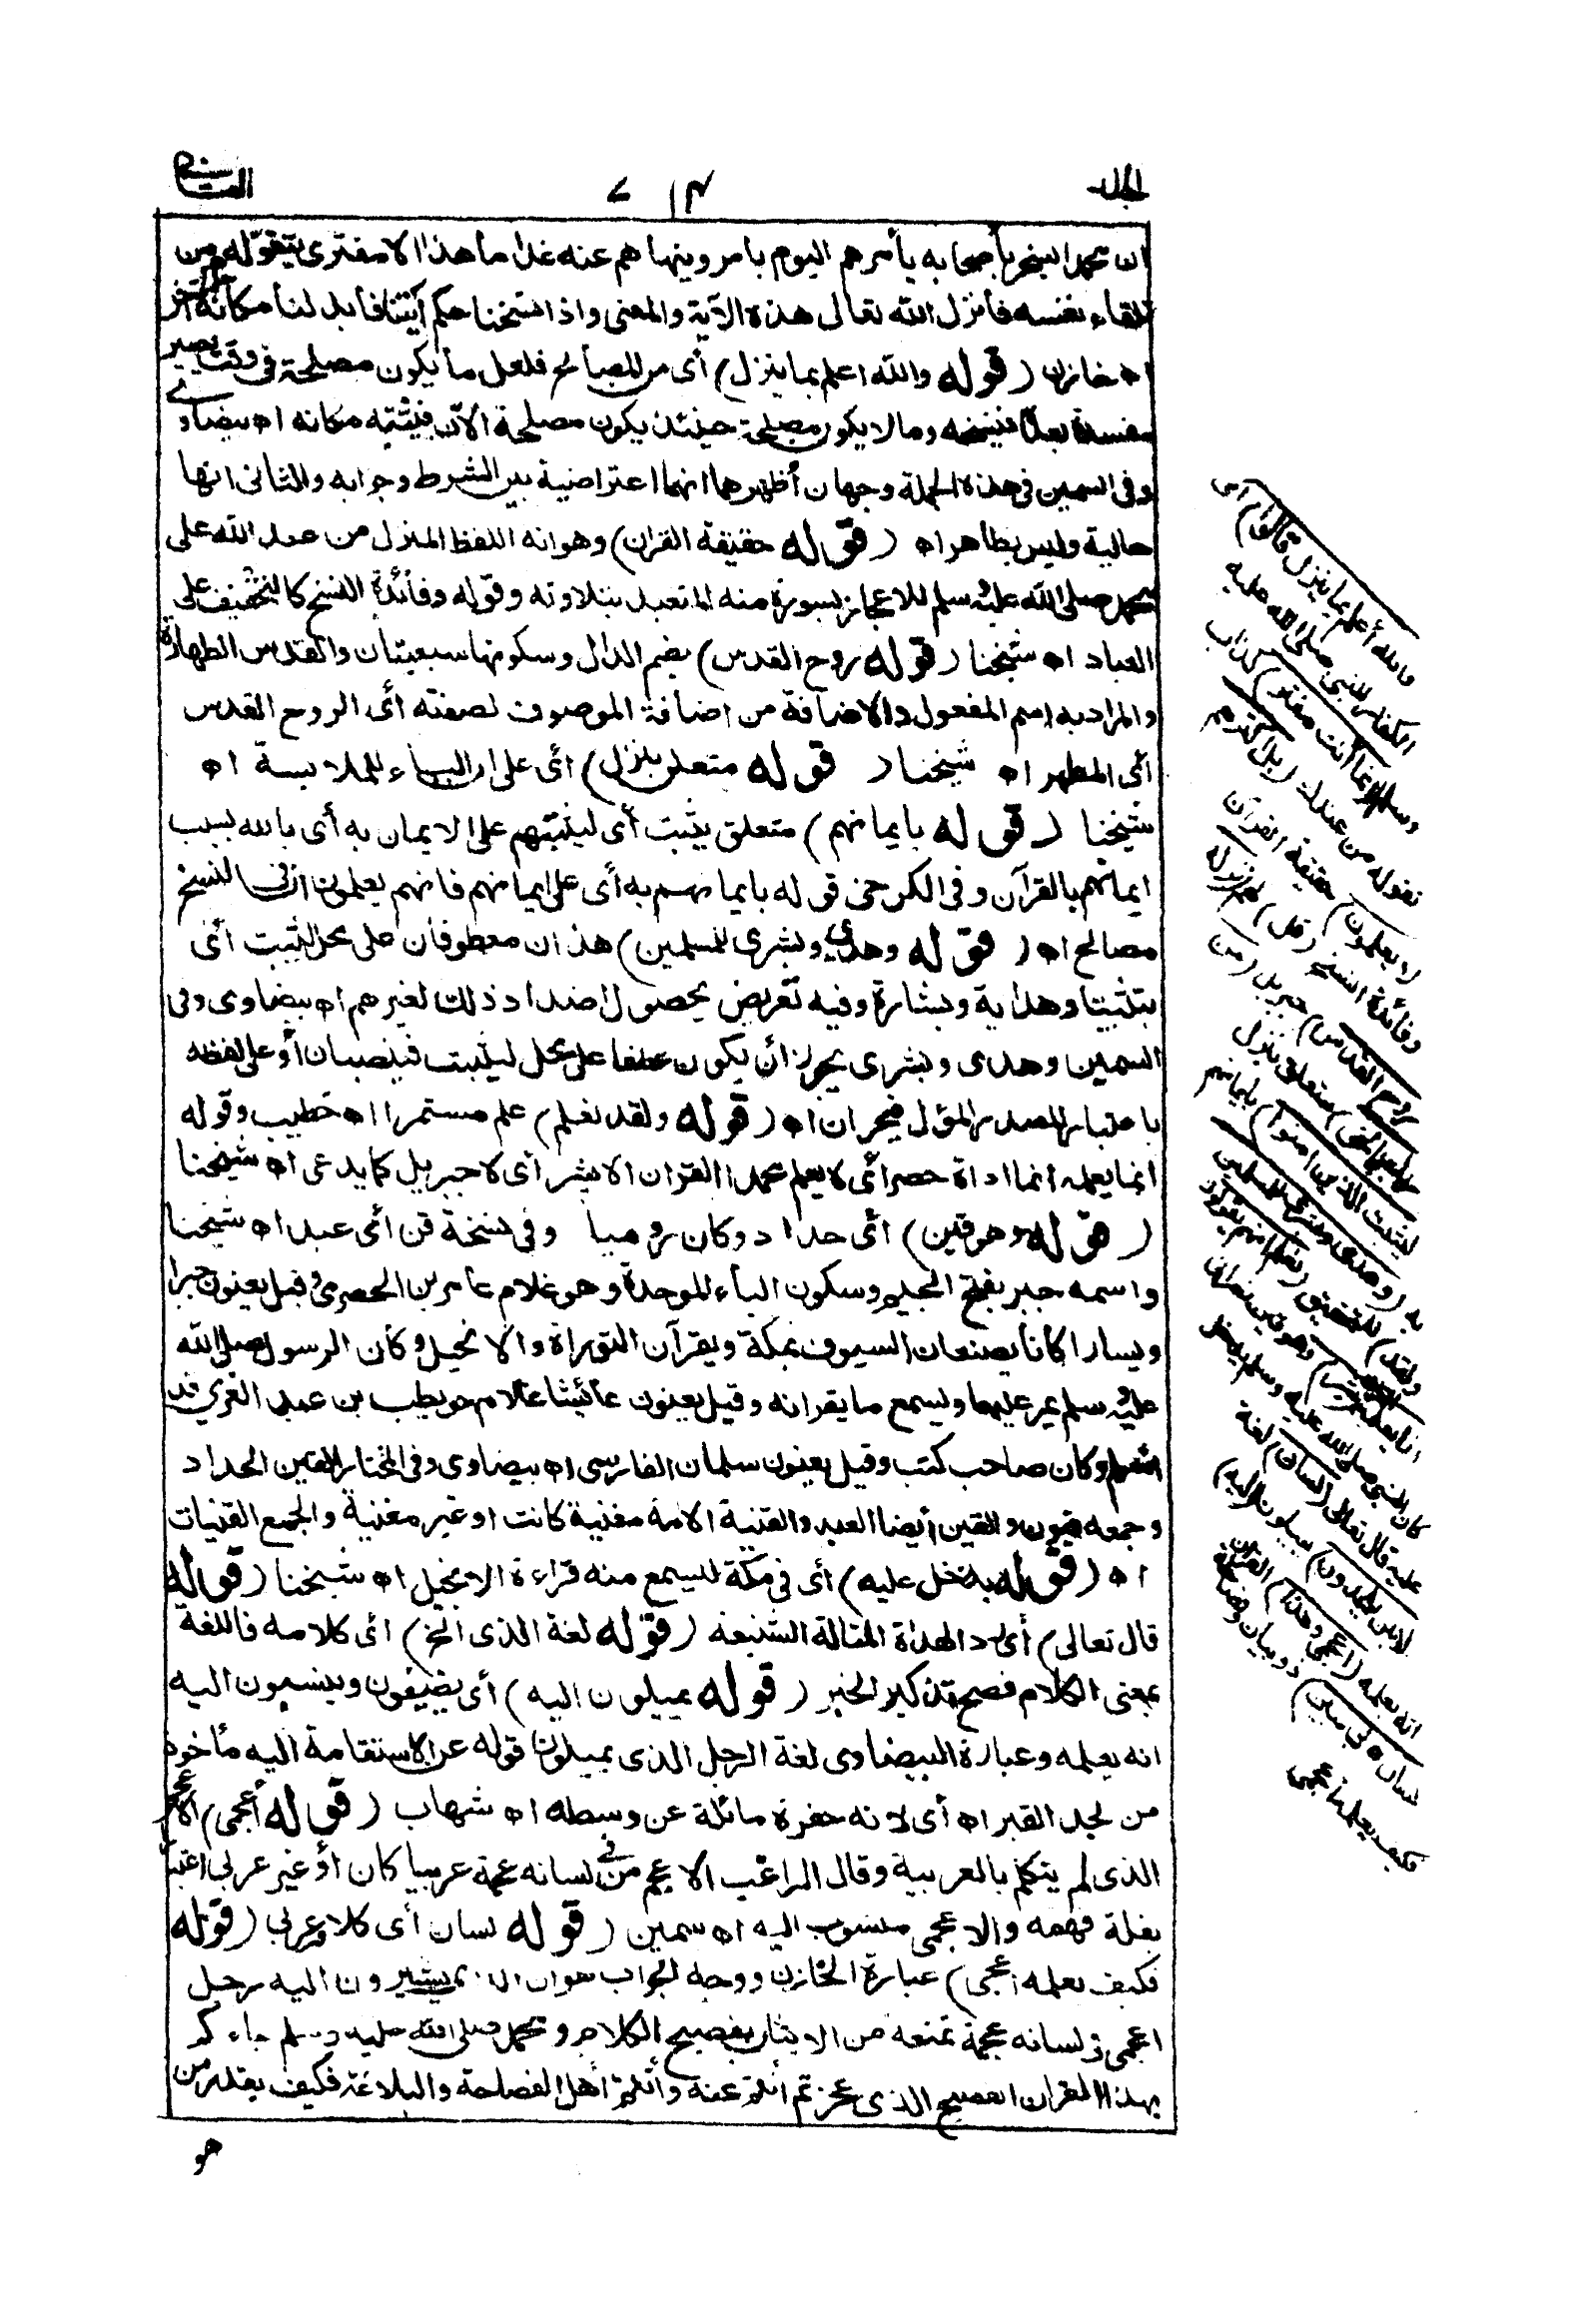 الجلد
٧ ١٣
الثانى
ان محمدا يسخر بأصحابه يأمرهم اليوم بامر وينهاهم عنه غدا ما هذا الا مفترى يتقوله من
تلقاء نفسه فأنزل الله تعالى هذه الآية والمعنى واذا نسخنا حكم آية فأبدلنا مكانه آخر
اه خازن (قوله والله اعلم بما ينزل) أى من المصالح فلعل ما يكون مصلحة فى وقت يصير
مفسدة بعده فينسخه وما لا يكون مصلحة حينئذ يكون مصلحة الآن فيثبته مكانه اه بيضاوى
وفى السمين فى هذه الجملة وجهان أظهرهما انها اعتراضية بين الشرط وجوابه والثانى انها
حالية وليس بظاهر اه (قوله حقيقة القران) وهو انه اللفظ المنزل من عند الله على
محمد صلى الله عليه وسلم للاعجاز بسورة منه المتعبد بتلاوته وقوله وفائدة النسخ كالتخفيف على
العباد اه شيخنا (قوله روح القدس) بضم الدال وسكونها سبعيتان والقدس الطهارة
والمراد به اسم المفعول والاضافة من اضافة الموصوف لصفته أى الروح القدس
أى المطهر اه شيخنا (قوله متعلق بنزل) أى على ان الباء للملابسة اه
شيخنا (قوله بايمانهم) متعلق يثبت أى ليثبتهم على الايمان به أى بالله بسبب
ايمانهم بالقرآن وفى الكرخى قوله بايمانهم به أى على ايمانهم فانهم يعلمون ان فى النسخ
مصالح اه (قوله وهدى وبشرى للمسلمين) هذان معطوفان على محل ليثبت أى
تثبيتا وهداية وبشارة وفيه تعريض بحصول اضداد ذلك لغيرهم اه بيضاوى وفى
السمين وهدى وبشرى يجوز أن يكون عطفا على محل ليثبت فينصبان أو على لفظه
باعتبار المصدر المؤل فيجران اه (قوله ولقد نعلم) علم مستمرا اه خطيب وقوله
انما يعلمه انما اداة حصر أى لا يعلم محمدا القران الا بشر أى لا جبريل كما يدعى اه شيخنا
(قوله وهو قين) أى حداد وكان روميا وفى نسخة قن أى عبد اه شيخنا
واسمه جبر بفتح الجيم وسكون الباء الموحدة وهو غلام عامر بن الحضرمى وقيل يعنون جبرا
ويسارا كانا يصنعان السيوف بمكة ويقرآن التوراة والانجيل وكان الرسول صلى الله
عليه وسلم يمر عليهما ويسمع ما يقرانه وقيل يعنون عائشا غلام حويطب بن عبد العزى قد
اسلم وكان صاحب كتب وقيل يعنون سلمان الفارسى اه بيضاوى وفى المختار القين الحداد
وجمعه قيون والقين أيضا العبد والقنية الامة مغنية كانت او غير مغنية والجمع القنيات
اه (قوله يدخل عليه) أى فى مكة ليسمع منه قراءة الانجيل اه شيخنا (قوله
قال تعالى) أى رد الهذاة المقالة الشنيعه (قوله لغة الذى الخ) أى كلامه فاللغة
بمعنى الكلام فصح تذكير الخبر (قوله يميلون اليه) أى يضيفون وينسبون اليه
انه يعلمه وعبارة البيضاوى لغة الرجل الذى يميلون قوله عن الاستقامة اليه مأخوذ
من لحد القبر اه أى لانه حفرة مائلة عن وسطه اه شهاب (قوله أعجمى) الاعجمى
الذى لم يتكلم بالعربية وقال الراغب الاعجم من فى لسانه عجمة عربيا كان أو غير عربى اعتبارا
بقلة فهمه والاعجمى منسوب اليه اه سمين (قوله لسان أى كلام عربى (قوله
فكيف يعلمه اعجمى) عبارة الخازن ووجه الجواب هو ان الذى يشيرون اليه رجل
اعجمى فى لسانه عجمة تمنعه من الاتيان بفصيح الكلام ومحمد صلى الله عليه وسلم جاءكم
بهذا القران الفصيح الذى عجزتم أنتم عنه وأنتم أهل الفصاحة والبلاغة فكيف يقدر من
هو
والله أعلم بما ينزل قالوا) اى
الكفار للنبى صلى الله عليه
وسلم (انما أنت مفتر) كذاب
تقوله من عندك (بل اكثرهم
لا يعلمون) حقيقة القرآن
وفائدة النسخ (قل) لهم (نزله
روح القدس) جبريل (من
ربك بالحق) متعلق بنزل
ليثبت الذين امنوا) بايمانهم
به (وهدى وبشرى للمسلمين
ولقد) للتحقيق (نعلم انهم يقولون
انما يعلمه بشر) وهو قين نصرانى
كان النبى صلى الله عليه وسلم يدخل
عليه قال تعالى (لسان) لغة
الذين يلحدون) يميلون (اليه)
انه يعلمه (اعجمى وهذا) القران
لسان عربى مبين) ذو بيان وفصاحة
فكيف يعلمه اعجمى